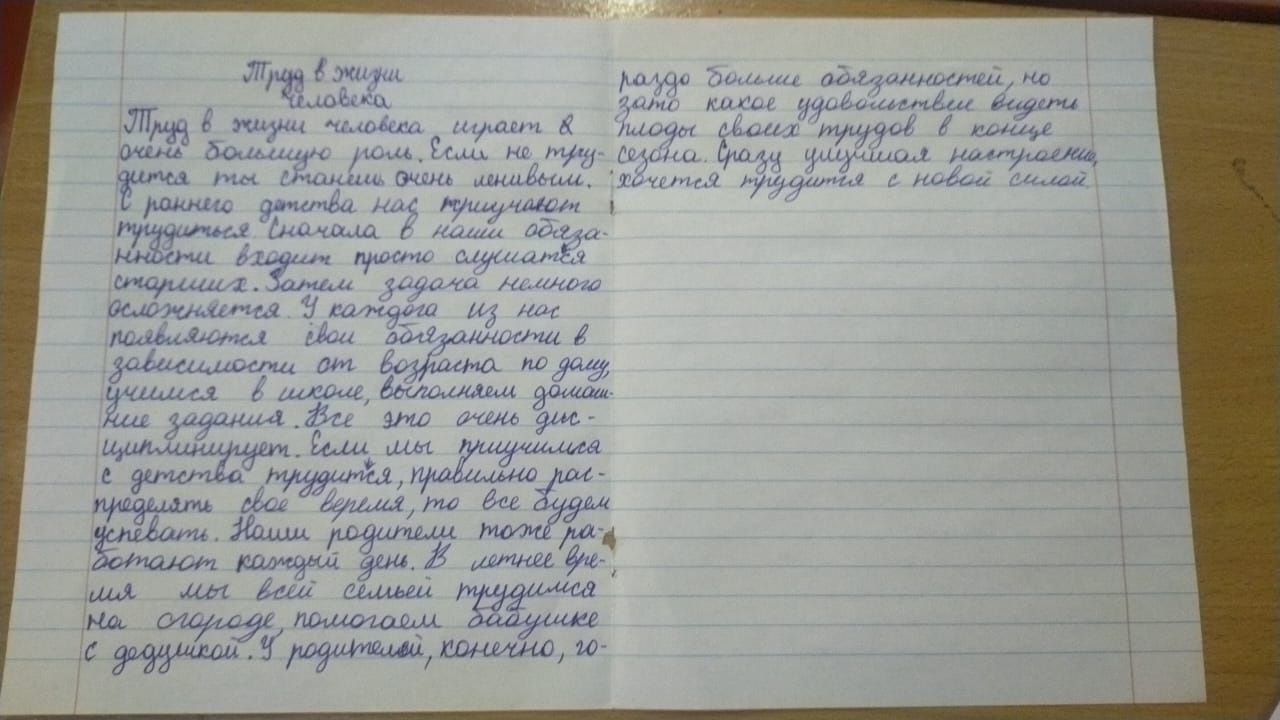 Труд в жизни
человека
Труд в жизни человека играет
очень большую роль. Если не тру-
дится ты станешь очень ленивым.
С раннего детства нас приучают
трудиться. Сначала в наши обяза-
нности входит просто слушаться
старших. Затем задача немного
осложняется. У каждога из нас
появляются свои обязанности в
зависимости от возраста по дому,
учимся в школе, выполняем домаш-
ние задания. Все это очень дис-
циплинирует. Если мы приучимся
с детства трудиться, правильно рас-
пределять свое веремя, то все будем
успевать. Наши родители тоже ра-
ботают каждый день. В летнее вре-
мя мы всей семьей трудимся
на огороде, помогаем бабушке
с дедушкой. У родителей, конечно, го-
раздо больше обязанностей, но
зато какое удовольствеи видеть
плоды своих трудов в конце
сезона. Сразу настроение,
хочется трудится с новой силой